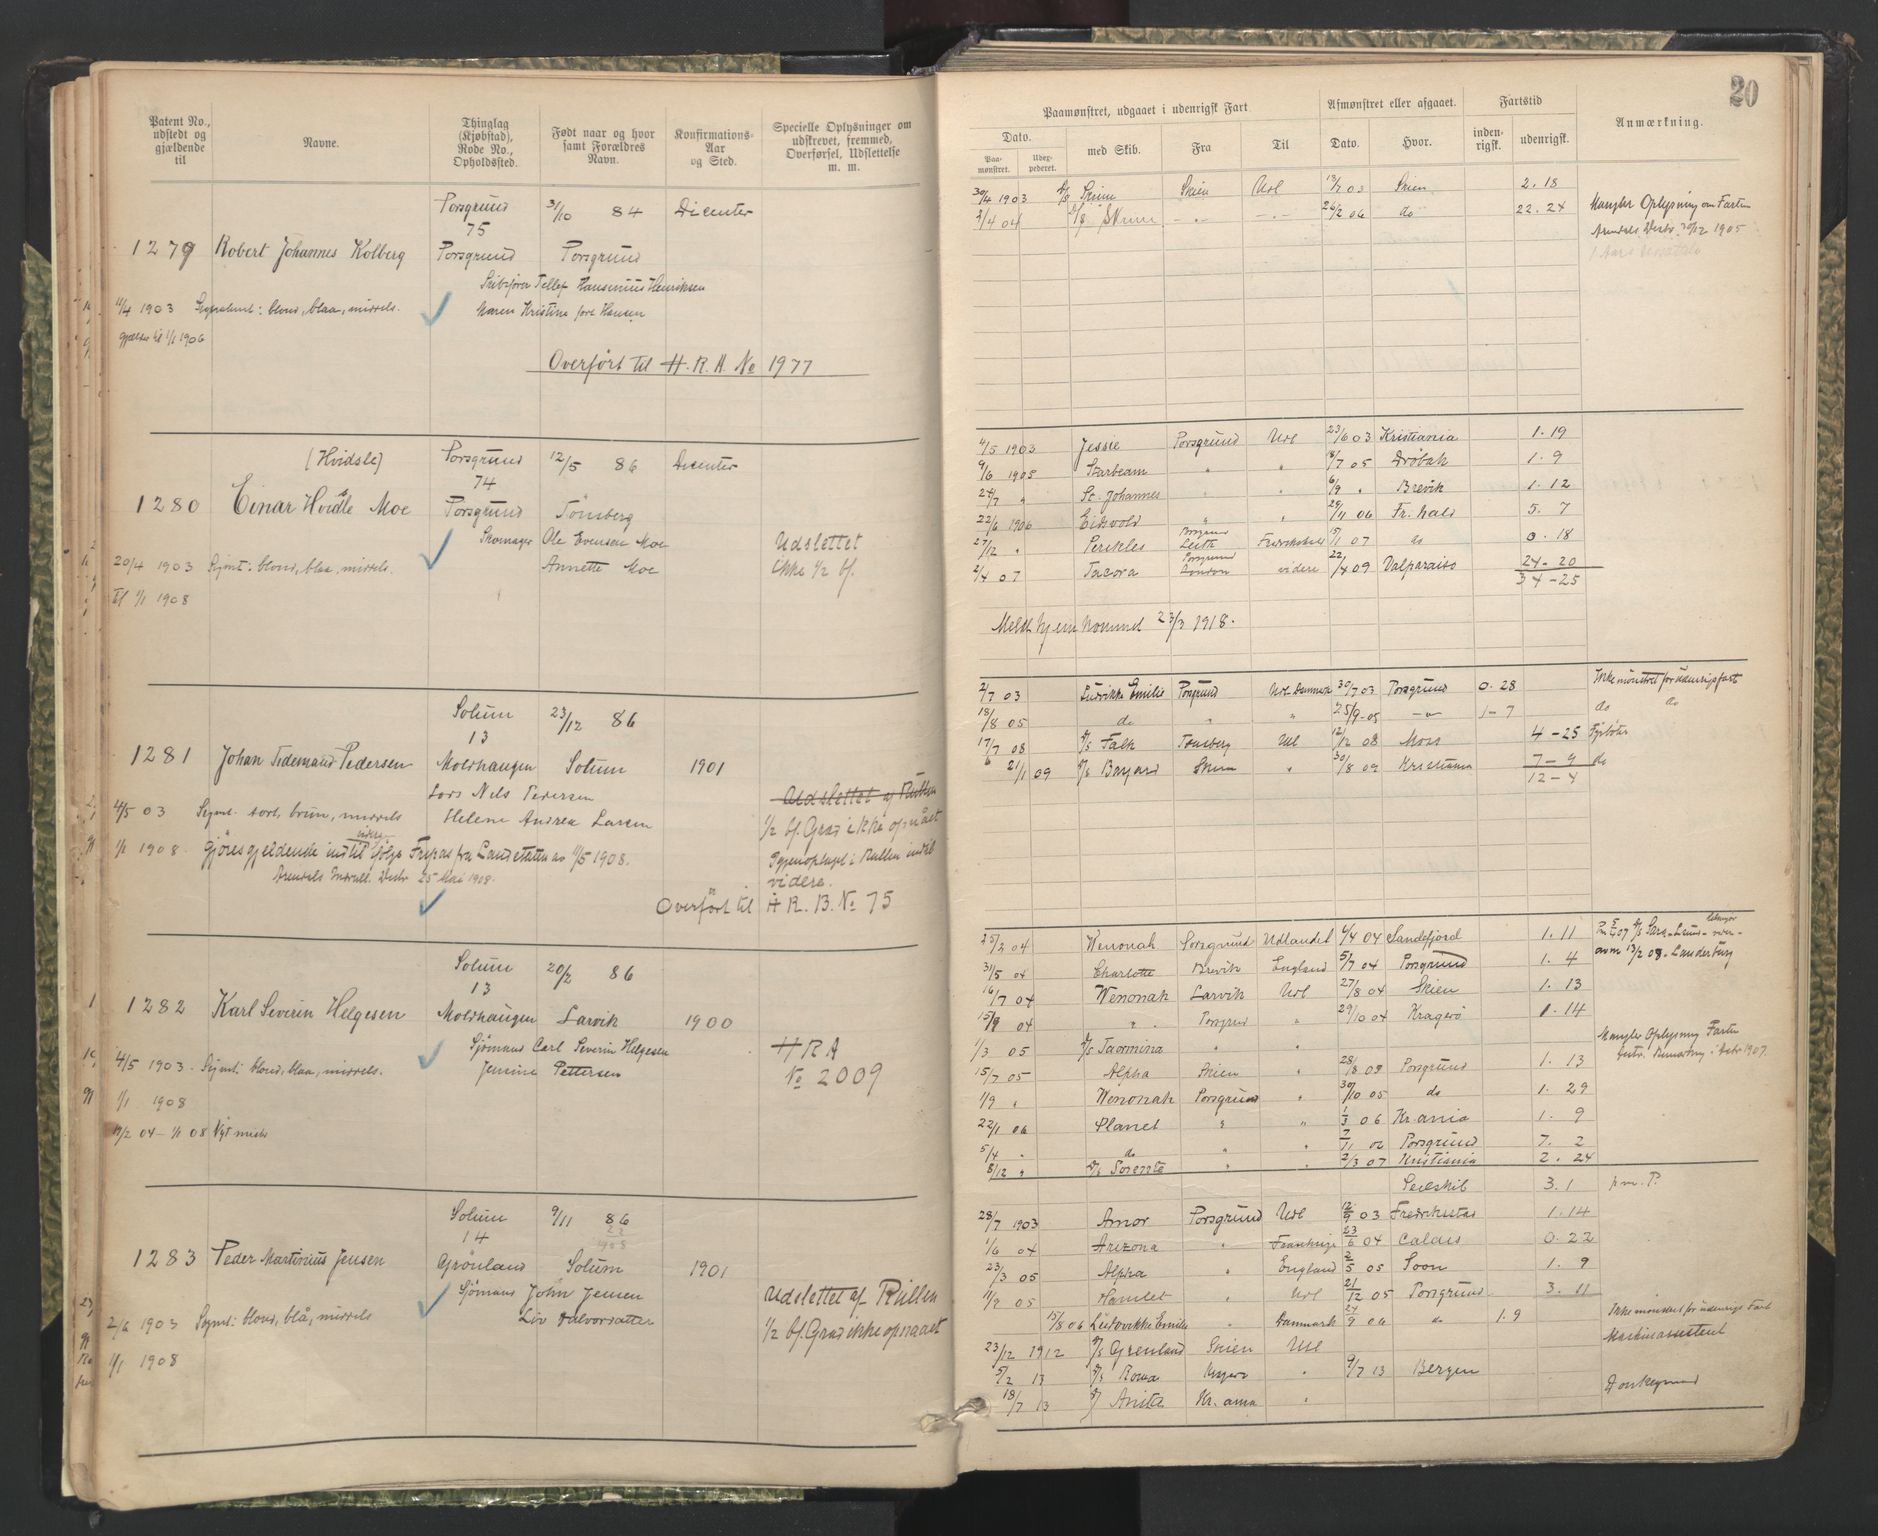 20
Patent No., udstedt og gjældende til
Navne.
Thinglag (Kjøbstad), Rode No., Opholdssted.
Født naar og hvor samt Forældres Navn.
Konfirmations-Aar og Sted.
Specielle Oplysninger om udskrevet, fremmed, Overførsel, Udslettelse m. m.
Porsgrund 31/10 84 Dicenter
75
1279 Robert Johannes Kolberg Porsgrund Porsgrund
Skibsfører Tellef Hansenius Henriksen
11/4 1903 Signalemt: blond, blaa, middels. Maren Kristine fød Hansen
gjælder til 1/1 1906
Overført til H. R. A. No 1977
[Hvidsle] Porsgrund 12/5 86 Dicenter
74
1280 Einar Hvidsle Moe Porsgrund Tönsberg
Skomager Ole Evensen Moe Udslettet
20/4 1903 Sigmt: blond, blaa, middels. Annette Moe ikke 1/2 bf.
til 1/1 1908
Solum 23/12 86
13
1281 Johan Tidemand Pedersen Moldhaugen Solum 1901
Lods Nels Pedersen Udslettet af Rullen
4/5 03 Sigmt. sort, brun, middels Helene Andrea Larsen 1/2 bf. Grad ikke opnaaet
1/1 1908. gjöres gjeldende indtil videre ifølge Fripas fra Landetaten av 11/5 1908. Igjenoptaget i Rullen indtil
Arendals Indrull. Distr 25 Mai 1908. videre.
Overført til H R. B. No 75
Solum 20/2 86
13
1282 Karl Severin Helgesen Moldhaugen Larvik 1900
Sjömand Carl Severin Helgesen H R A
4/5 1903. Sigmt: blond, blaa, middels. Jensine Pettersen No 2009
1/1 1908
19/2 04 - 1/1 08 Nyt
Solum 9/11 86
14 22
1908
1283 Peder Martinius Jensen Grönland Solum 1901
Sjömand John Jensen Udslettet af Rullen
2/6 1903 Sigmt: blond, blå, middels Liv Halvorsdatter 1/2 bf. Grad ikke opnaaet
1/1 1908
Paamønstret, udgaaet i udenrigsk Fart
Afmønstret eller afgaaet.
Fartstid
Anmærkning.
Dato.
Paa-mønstret.
Udex-pederet.
med Skib.
Fra
Til
Dato.
Hvor.
inden-rigsk.
udenrigsk.
30/4 1903 D/S Skien Skien Udl 13/7 03 Skien 2. 18
2/4 04 D/S Skien - " - - " - 26/2 06 do 22. 24 Mangler Oplysning om Farten
Arendals Distr. 30/12 1905
4/5 1903 Jessie Porsgrund Udl 23/6 03 Kristiania 1. 19
9/6 1905 Starbeam " " 18/7 05 Dröbak 1. 9
24/7 " St. Johannes " " 6/9 " Brevik 1. 12
22/6 1906 Eidsvold " " 29/11 06 Fr. hald 5. 7
27/12 " Perikles Porsgrund Leith Fredrikshald 15/1 07 do 0. 18
2/4 07 Tacora Porsgrund London videre 22/4 09 Valparaiso 24-20
34-25
Meldt hjemkommet 23/3 1918.
2/7 03 Ludvikke Emilie Porsgrund Udl Danmark 30/7 03 Porsgrund 0. 28 Ikke mönstret for udenrigsfart
18/8 05 do " " 25/9-05 - " - 1-7 do do
17/7 08 D/S Falk Tönsberg Udl 12/12 08 Moss 4-25 Fyrböter
21/1 09 D/S Bayard Skien " 30/8 09 Kristiania 7-9 do
12-4
25/2 04 Wenonah Porsgrund Udlandet 6/4 04 Sandefjord 1. 11
31/5 04 Charlotte Brevik England 5/7 04 Porsgrund 1. 4 avm 13/2 08
16/7 04 Wenonah Larvik Udl 27/8 04 Skien 1. 13
15/9 04 " Porsgrund " 29/10 04 Kragerö 1. 14
1/3 05 D/S Taormina " " Mangler Oplysning Farten
15/7 05 Alpha Skien " 28/8 09 Porsgrund 1. 13
1/9 " Wenonah Porsgrund " 30/10 05 do 1. 29
22/1 06 Planet " " 1/3 06 Kr. ania 1. 9
5/4 " do " " 7/11 06 Porsgrund 7. 2
8/12 " D/S Sorento " " 2/3 07 Kristiania 2. 24
Seilskib 3. 1
28/7 1903 Amor Porsgrund Udl 12/9 03 Fredriksstad 1. 14
1/6 04 Arizona " Frankrige 23/6 04 Calais 0. 22
23/3 05 Alpha " England 2/5 05 Soon 1. 9
11/9 05 Hamlet " Udl 21/12 05 Porsgrund 3. 11
15/8 06 Ludovikke Emilie " Danmark 24/9 06 do 1. 9 Ikke mönstret for udenrigs Fart
23/12 1912 D/S Grenland Skien Udl Maskinassistent
5/2 13 D/S Roma " 9/7 13 Bergen
18/7 13 D/S Anita Kr. ania " Donkeymand